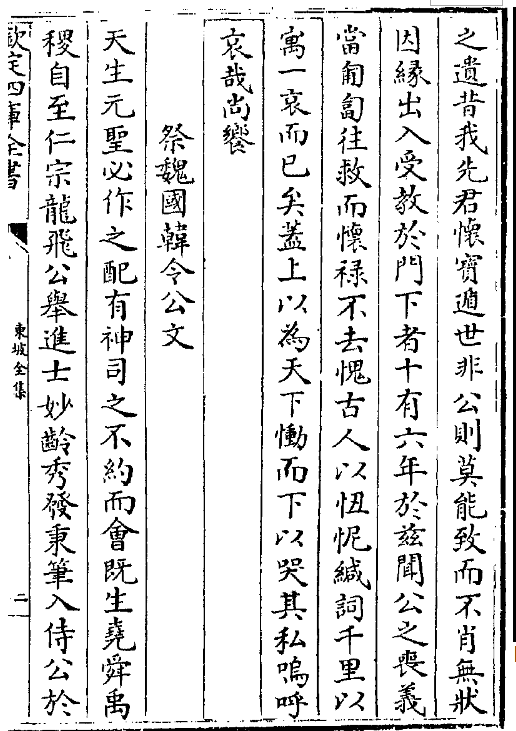 之遺昔我先君懷寳遁世非公則莫能致而不肖無狀
因縁出入受教於門下者十有六年於兹聞公之喪義
當匍匐往救而懷禄不去愧古人以忸怩緘詞千里以
寓一哀而已矣葢上以為天下慟而下以哭其私嗚呼
哀哉尚饗
祭魏國韓令公文
天生元聖必作之配有神司之不約而會既生堯舜禹
稷自至仁宗龍飛公舉進士妙齡秀發秉筆入侍公於
欽定四庫全書
東坡全集
二